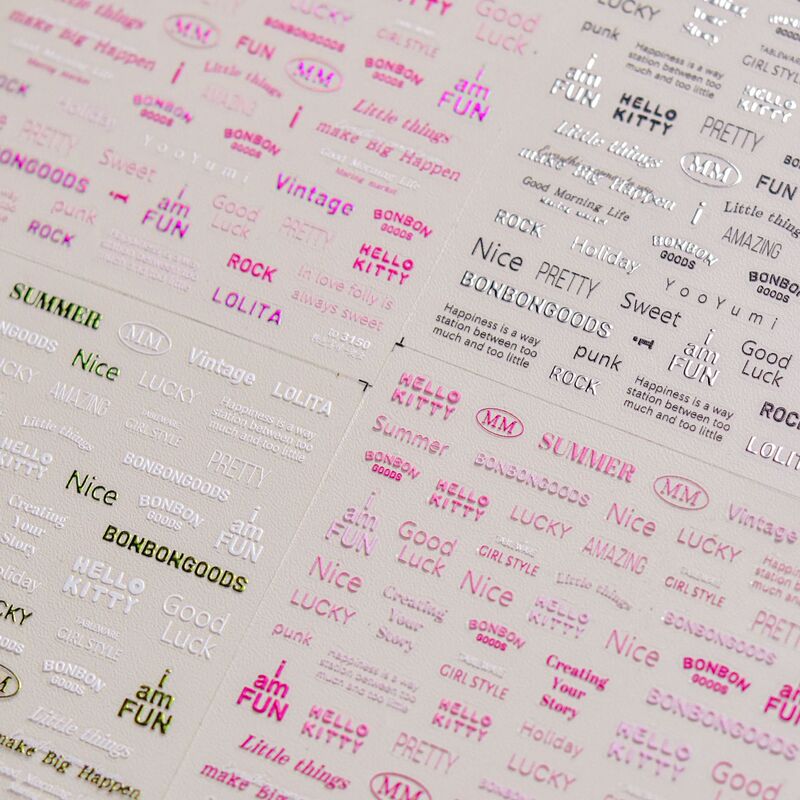 LUCKY
Good
Luck
MM
FUN
BONBONGOODS
GIRL STYLE
make Big Happen
i
Little things
MM
BONBON
GOODS
i
am
FUN
ROCK
Holiday
BONBON
GOODS
AMAZING
i
Little things
make Big Happen
PRETTY
YooYumi
BONBON
GOODS
Good Morning Life
BONBONGOODS
Sweet
Vintage
punk
i
am
FUN
Good
Luck
PRETTY
BONBON
GOODS
ROCK
ROCK
HELLO
KITTY
LOLITA
in love folly is
always sweet
to 3150
LUCKY
Your
Story
punk
Happiness is a way
station between too
much and too little
TABLEWARE
GIRL STYLE
i
am
FUN
HELLO
KITTY
PRETTY
HELLO
KITTY
Little things
make Big Happen
MM
FUN
Good Morning Life
i
Little things
ROCK
Holiday
BONBON
GOODS
AMAZING
Nice
PRETTY
YooYumi
BONBON
GOODS
BONBONGOODS
Sweet
i
am
FUN
Good
Luck
Happiness is a way
station between too
much and too little
punk
ROCK
Happiness is a way
station between too
much and too little
ROCK
LOLITA
SUMMER
MM
Vintage
LOLITA
Nice
LUCKY
Happiness is a way
station between too
much and too little
AMAZING
TABLEWARE
GIRL STYLE
Little things
BONBONGOODS
PRETTY
HELLO
KITTY
Nice
BONBON
GOODS
i
am
FUN
Creating
Your
Story
BONBONGOODS
Holiday
HELLO
KITTY
Good
Luck
TABLEWARE
GIRL STYLE
BONBON
GOODS
i
am
FUN
Little things
make Big Happen
HELLO
KITTY
MM
SUMMER
MM
Vintage
Summer
BONBONGOODS
BONBON
GOODS
HELLO
KITTY
LUCKY
Nice
LUCKY
i
am
FUN
Good
Luck
GIRL STYLE
AMAZING
GIRL STYLE
Little things
PRETTY
Nice
Creating
Your
Story
Nice
HELLO
KITTY
BONBONGOODS
LUCKY
BONBON
GOODS
Nice
punk
Happiness is a way
station between too
much and too little
GIRL STYLE
Creating
Your
Story
BONBON
GOODS
i
am
FUN
HELLO
KITTY
HELLO
KITTY
Holiday
BONBONGOODS
Little things
make Big Happen
PRETTY
LUCKY
HELLO
KITTY
Good
Luck
MM